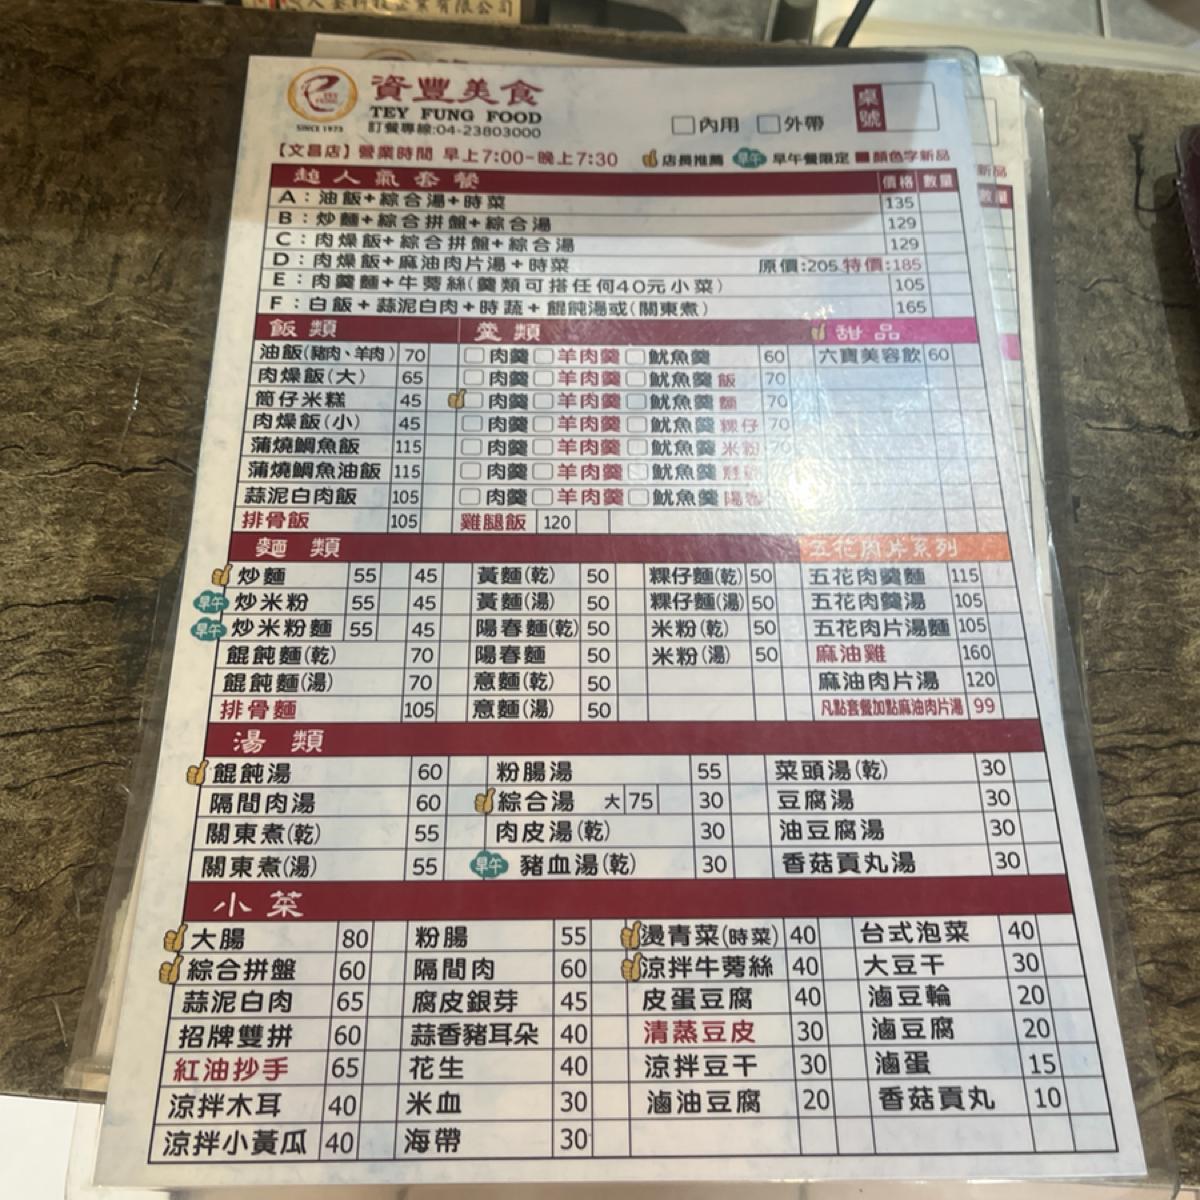 資豐美食
TEY FUNG FOOD
SINCE 1973
訂餐專線:04-23803000
內用 外帶 桌號
【文昌店】營業時間 早上7:00-晚上7:30 店長推薦 早午 早午餐限定 顏色字新品
超人氣套餐 價格 數量
A：油飯+綜合湯+時菜 135
B：炒麵+綜合拼盤+綜合湯 129
C：肉燥飯+綜合拼盤+綜合湯 129
D：肉燥飯+麻油肉片湯+時菜 原價:205 特價:185
E：肉羹麵+牛蒡絲(羹類可搭任何40元小菜) 105
F：白飯+蒜泥白肉+時蔬+餛飩湯或(關東煮) 165
飯類 羹類 甜品
油飯(豬肉、羊肉) 70 肉羹 羊肉羹 魷魚羹 60 六寶美容飲 60
肉燥飯(大) 65 肉羹 羊肉羹 魷魚羹 飯 70
筒仔米糕 45 肉羹 羊肉羹 魷魚羹 麵 70
肉燥飯(小) 45 肉羹 羊肉羹 魷魚羹 粿仔 70
蒲燒鯛魚飯 115 肉羹 羊肉羹 魷魚羹 米粉 70
蒲燒鯛魚油飯 115 肉羹 羊肉羹 魷魚羹
蒜泥白肉飯 105 肉羹 羊肉羹 魷魚羹
排骨飯 105 雞腿飯 120
麵類 五花肉片系列
炒麵 55 45 黃麵(乾) 50 粿仔麵(乾) 50 五花肉羹麵 115
早午 炒米粉 55 45 黃麵(湯) 50 粿仔麵(湯) 50 五花肉羹湯 105
早午 炒米粉麵 55 45 陽春麵(乾) 50 米粉(乾) 50 五花肉片湯麵 105
餛飩麵(乾) 70 陽春麵 50 米粉(湯) 50 麻油雞 160
餛飩麵(湯) 70 意麵(乾) 50 麻油肉片湯 120
排骨麵 105 意麵(湯) 50 凡點套餐加點麻油肉片湯 99
湯類
餛飩湯 60 粉腸湯 55 菜頭湯(乾) 30
隔間肉湯 60 綜合湯 大 75 30 豆腐湯 30
關東煮(乾) 55 肉皮湯(乾) 30 油豆腐湯 30
關東煮(湯) 55 早午 豬血湯(乾) 30 香菇貢丸湯 30
小菜
大腸 80 粉腸 55 燙青菜(時菜) 40 台式泡菜 40
綜合拼盤 60 隔間肉 60 涼拌牛蒡絲 40 大豆干 30
蒜泥白肉 65 腐皮銀芽 45 皮蛋豆腐 40 滷豆輪 20
招牌雙拼 60 蒜香豬耳朵 40 清蒸豆皮 30 滷豆腐 20
紅油抄手 65 花生 40 涼拌豆干 30 滷蛋 15
涼拌木耳 40 米血 30 滷油豆腐 20 香菇貢丸 10
涼拌小黃瓜 40 海帶 30